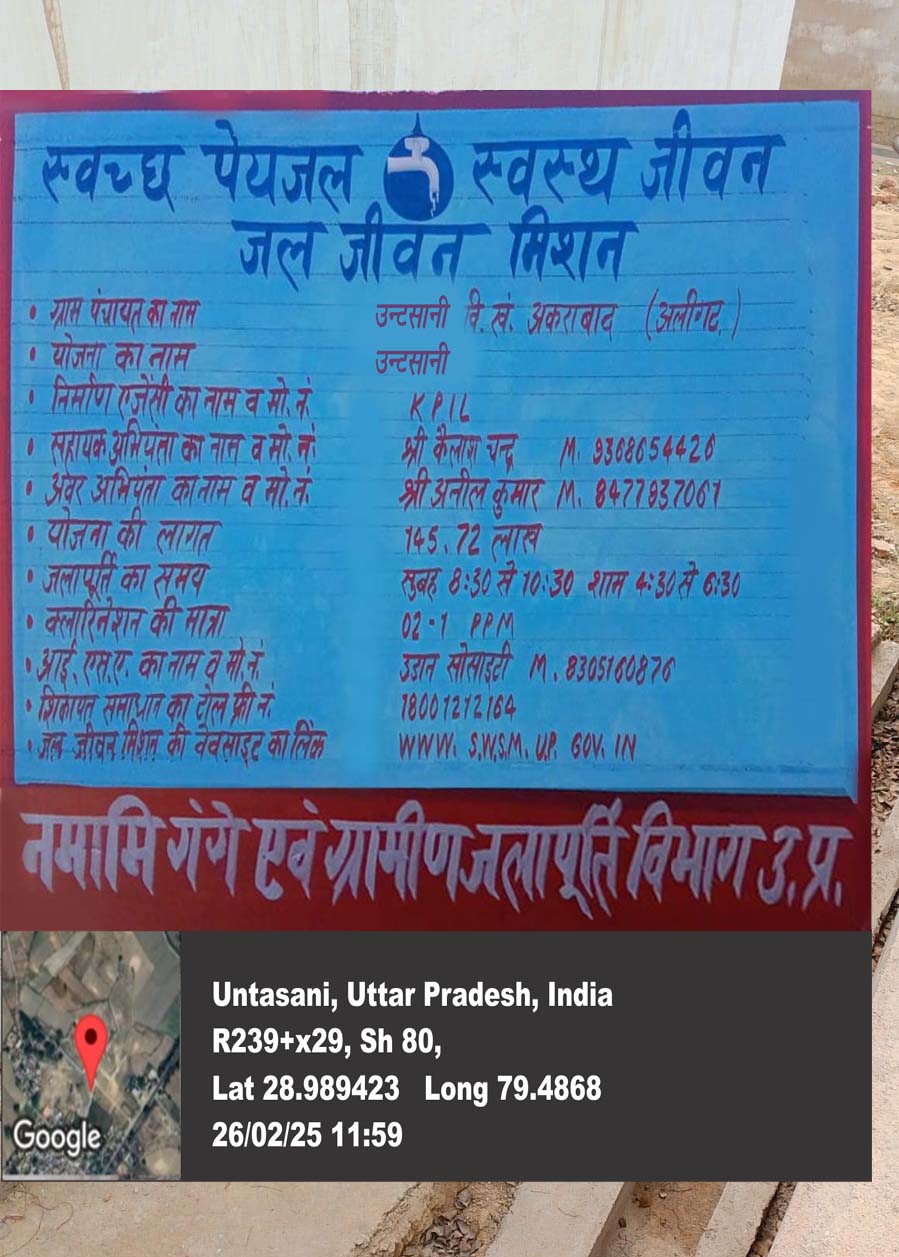 स्वच्छ पेयजल स्वस्थ जीवन
जल जीवन मिशन
• ग्राम पंचायत का नाम उन्टसानी वि. खं. अकराबाद (अलीगढ़)
• योजना का नाम उन्टसानी
• निर्माण एजेंसी का नाम व मो. नं. KPIL
• सहायक अभियंता का नाम व मो. नं. श्री कैलाश चन्द्र M. 9368654426
• अवर अभियंता का नाम व मो. नं. श्री अनील कुमार M. 8477937061
• योजना की लागत 145.72 लाख
• जलापूर्ति का समय सुबह 8:30 से 10:30 शाम 4:30 से 6:30
• क्लारिनेशन की मात्रा 02-1 PPM
• आई. एस.ए. का नाम व मो. नं. उडान सोसाइटी M. 8305160876
• शिकायत समाधात का टोल फ्री नं. 18001212164
• जल जीवन मिशन की वेवसाइट का लिंक WWW. S.W.S.M. U.P. GOV. IN
नमामि गंगे एवं ग्रामीण जलापूर्ति विभाग उ. प्र.
Untasani, Uttar Pradesh, India
R239+x29, Sh 80,
Lat 28.989423 Long 79.4868
26/02/25 11:59
Google